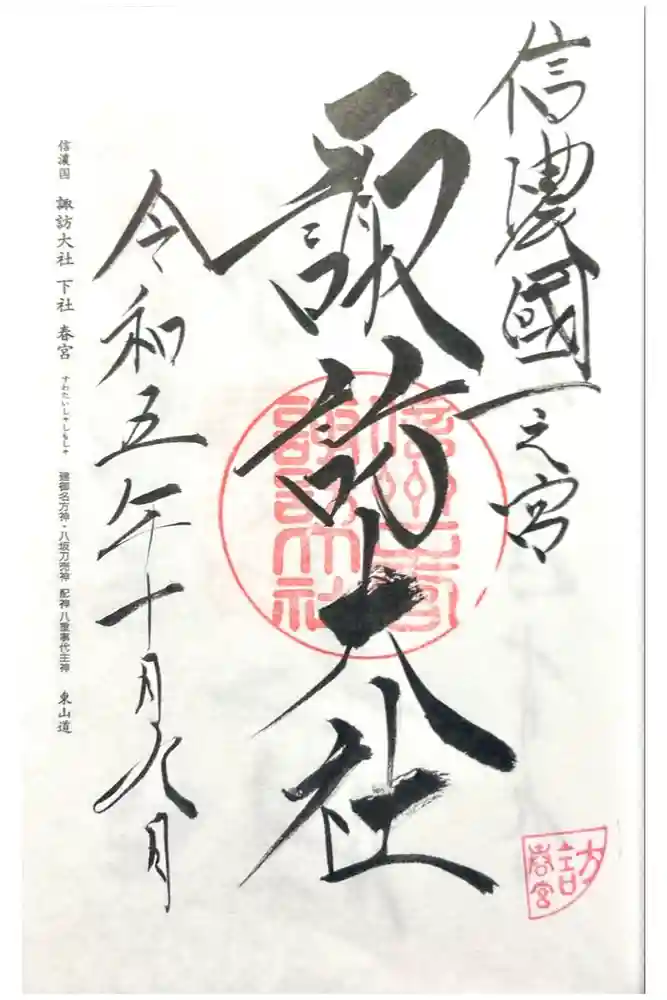 信濃國一之宮
諏訪大社
令和五年十月九日
信濃国 諏訪大社 下社 春宮 すわたいしゃしもしゃ 建御名方神・八坂刀売神 配神 八重事代主神 東山道
諏訪大社
訪
春宮